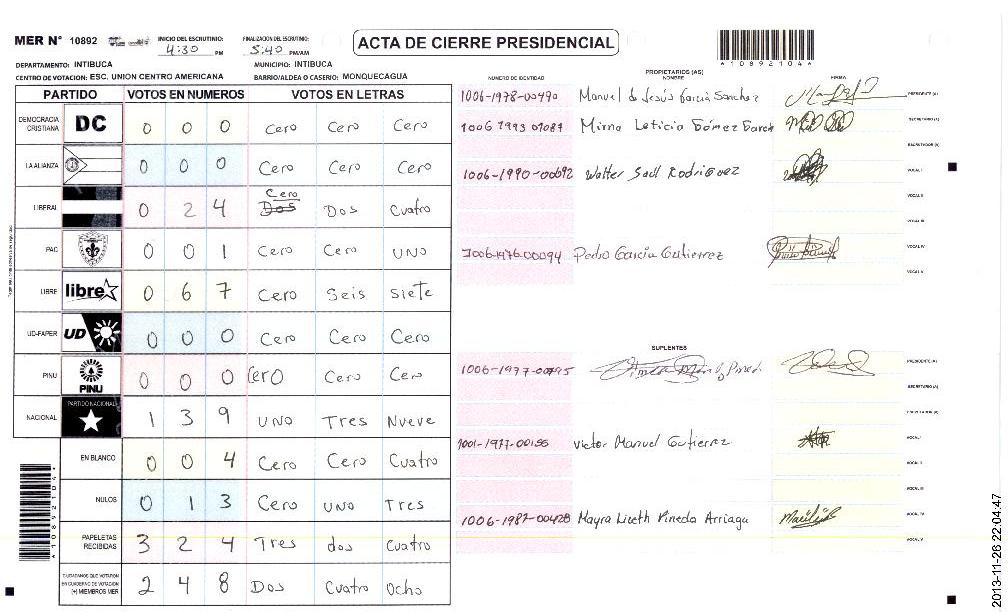 MER N° 10892
INICIO DEL ESCRUTINIO: 4:30 PM
FINALIZACION DEL ESCRUTINIO: 5:40 PM/AM
ACTA DE CIERRE PRESIDENCIAL
*10892104*
DEPARTAMENTO: INTIBUCA MUNICIPIO: INTIBUCA
CENTRO DE VOTACION: ESC. UNION CENTRO AMERICANA BARRIO/ALDEA O CASERIO: MONQUECAGUA
PARTIDO VOTOS EN NUMEROS VOTOS EN LETRAS
DEMOCRACIA CRISTIANA DC 0 0 0 Cero Cero Cero
LA ALIANZA 0 0 0 Cero Cero Cero
LIBERAL 0 2 4 Cero Dos Dos Cuatro
PAC 0 0 1 Cero Cero UNO
LIBRE libre 0 6 7 Cero Seis Siete
UD-FAPER UD 0 0 0 Cero Cero Cero
PINU PINU 0 0 0 Cero Cero Cero
NACIONAL PARTIDO NACIONAL 1 3 9 UNO Tres Nueve
EN BLANCO 0 0 4 Cero Cero Cuatro
NULOS 0 1 3 Cero UNO Tres
PAPELETAS RECIBIDAS 3 2 4 Tres dos Cuatro
CIUDADANOS QUE VOTARON EN CUADERNO DE VOTACION (+) MIEMBROS MER 2 4 8 Dos Cuatro Ocho
*10892104*
NUMERO DE IDENTIDAD PROPIETARIOS (AS) NOMBRE FIRMA
1006-1978-00490 Manuel de Jesús Garcia Sanchez PRESIDENTE (A)
Mirna Leticia Gómez SECRETARIO (A)
ESCRUTADOR (A)
1006-1990-00692 Walter Saúl Rodriguez VOCAL I
VOCAL II
VOCAL III
1006-1976-00094 Pedro García Gutierrez VOCAL IV
VOCAL V
SUPLENTES
1006-1977-00795 PRESIDENTE (A)
SECRETARIO (A)
ESCRUTADOR (A)
1001-1977-00156 Victor Manuel Gutierrez VOCAL I
VOCAL II
VOCAL III
1006-1987-00428 Mayra Liceth Pineda Arriaga VOCAL IV
VOCAL V
2013-11-26 22:04:47